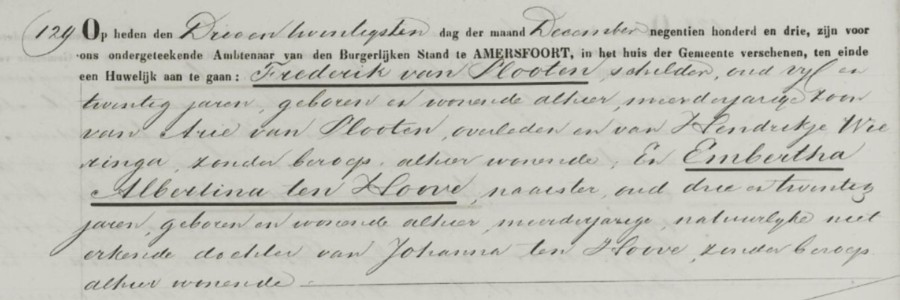 129 Op heden den Drie en twintigsten dag der maand December negentien honderd en drie, zijn voor
ons ondergeteekende Ambtenaar van den Burgerlijken Stand te AMERSFOORT, in het huis der Gemeente verschenen, ten einde
een Huwelijk aan te gaan: Frederik van Slooten, schilder, oud vyf en
twintig jaren, geboren en wonende alhier, meerderjarige zoon
van Arie van Slooten, overleden en van Hendrikje Wie
ringa, zonder beroep, alhier wonende; En Embertha
Albertina ten Hoove, naaister, oud drie en twintig
jaren, geboren en wonende alhier, meerderjarige, natuurlyke niet
erkende dochter van Johanna ten Hoove, zonder beroep
alhier wonende